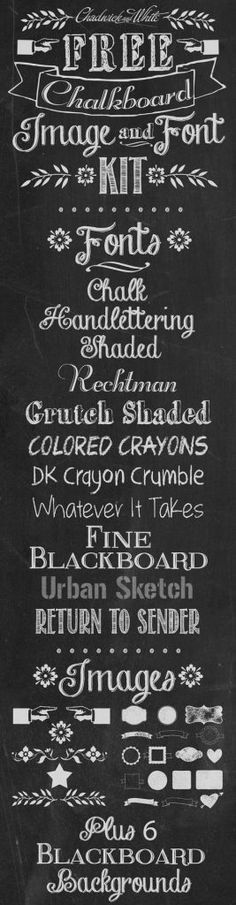 Chadwick and White
FREE
Chalkboard
Image and Font
KIT
Fonts
Chalk
Handlettering
Shaded
Rechtman
Grutch Shaded
COLORED CRAYONS
DK Crayon Crumble
Whatever It Takes
FINE
BLACKBOARD
Urban Sketch
RETURN TO SENDER
Images
Plus 6
BLACKBOARD
Backgrounds